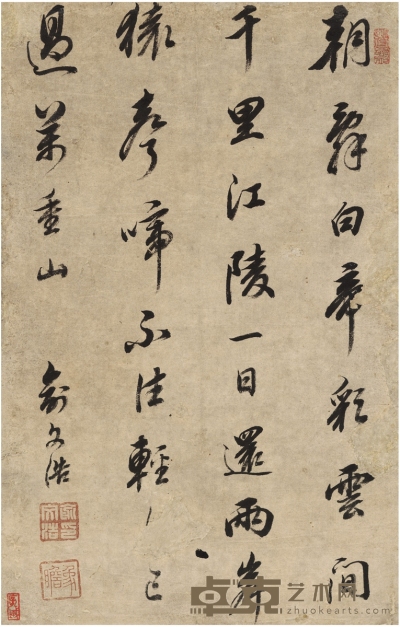 朝辭白帝彩雲間
千里江陵一日還兩岸
猿聲啼不住輕已
過萬重山
俞文浩
卓克艺术网
zhuokearts.com